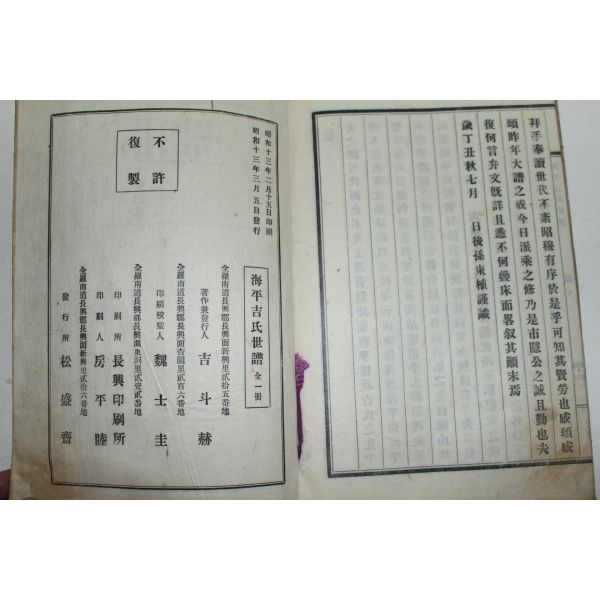 拜手奉讀世代不紊昭穆有序於是乎可知其賢勞也咸頌咸
頌昨年大譜之成今日派乘之修乃是市隱公之誠且勤也夫
復何言弁文旣詳且悉不何疊床面畧叙其顚末焉
歲丁丑秋七月　日後孫東植謹識
不許
復製
昭和十三年二月十五日印刷
昭和十三年三月五日發行
海平吉氏世譜 全一冊
全羅南道長興郡長興面新興里貳拾五番地
著作兼發行人 吉斗赫
全羅南道長興郡長興面杏園里貳百六番地
印刷校監人 魏士圭
全羅南道長興郡長興面東洞里貳壹貳番地
印刷所 長興印刷所
印刷人 房平陸
全羅南道長興郡長興面新興里貳拾六番地
發行所 松盛齋